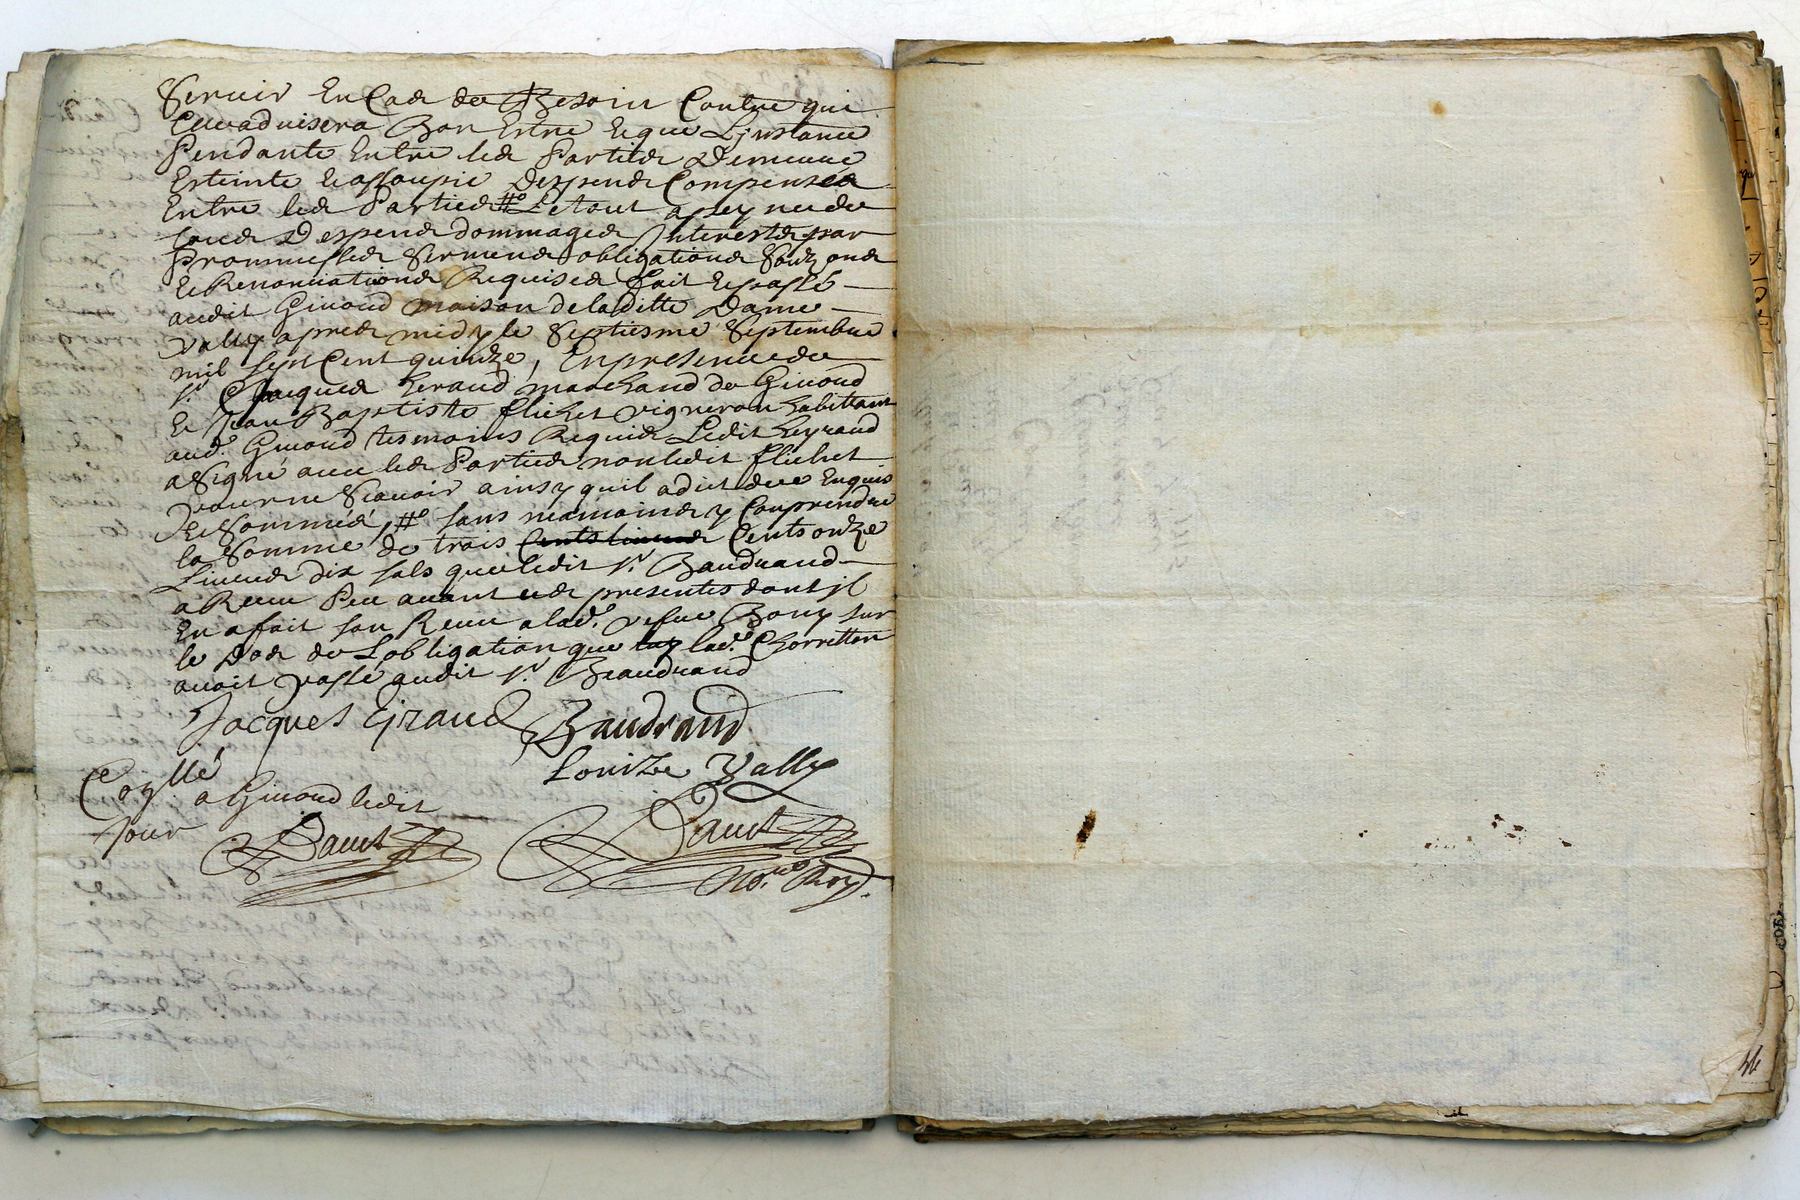 Seruir En Cas de Besoin Contre qui
Elle aduisera Bon Estre Et que L'jnstance
Pendante Entre les Parties Demeure
Esteinte Et assoupie Despens Compensés
Entre les Parties # Le tout a peyne de
tous Despens dommages Interests par
Prommesses Sermens obligations
Et Renonciations Requises fait Et passé
audit Giuord maison de laditte Dame
Vally apres midy le Septiesme Septembre
mil sept Cent quinze, En presence de
sr. Jacques Heraud marchand de Giuord
Et Jean Baptiste flichet vigneron habittant
aud. Giuord tesmoins Requis Ledit Heyraud
a Signé auec les Parties non ledit flichet
pour ne Scauoir ainsy quil a dit de ce Enquis
Et Sommés, # sans neamoins y Comprendre
la Somme de trois Cents liures Cents onze
Liures dix sols que ledit sr. Baudrand
a Receu Peu auant ces presentes dont jl
En a fait son Receu a lad. vefue Bouy sur
le Dos de Lobligation que lad. Chorretton
auoit passé audit sr. Beaudrand
Jacques Ejraud Baudrand
Louize Vally
Collé
a Giuord ledit
Jour